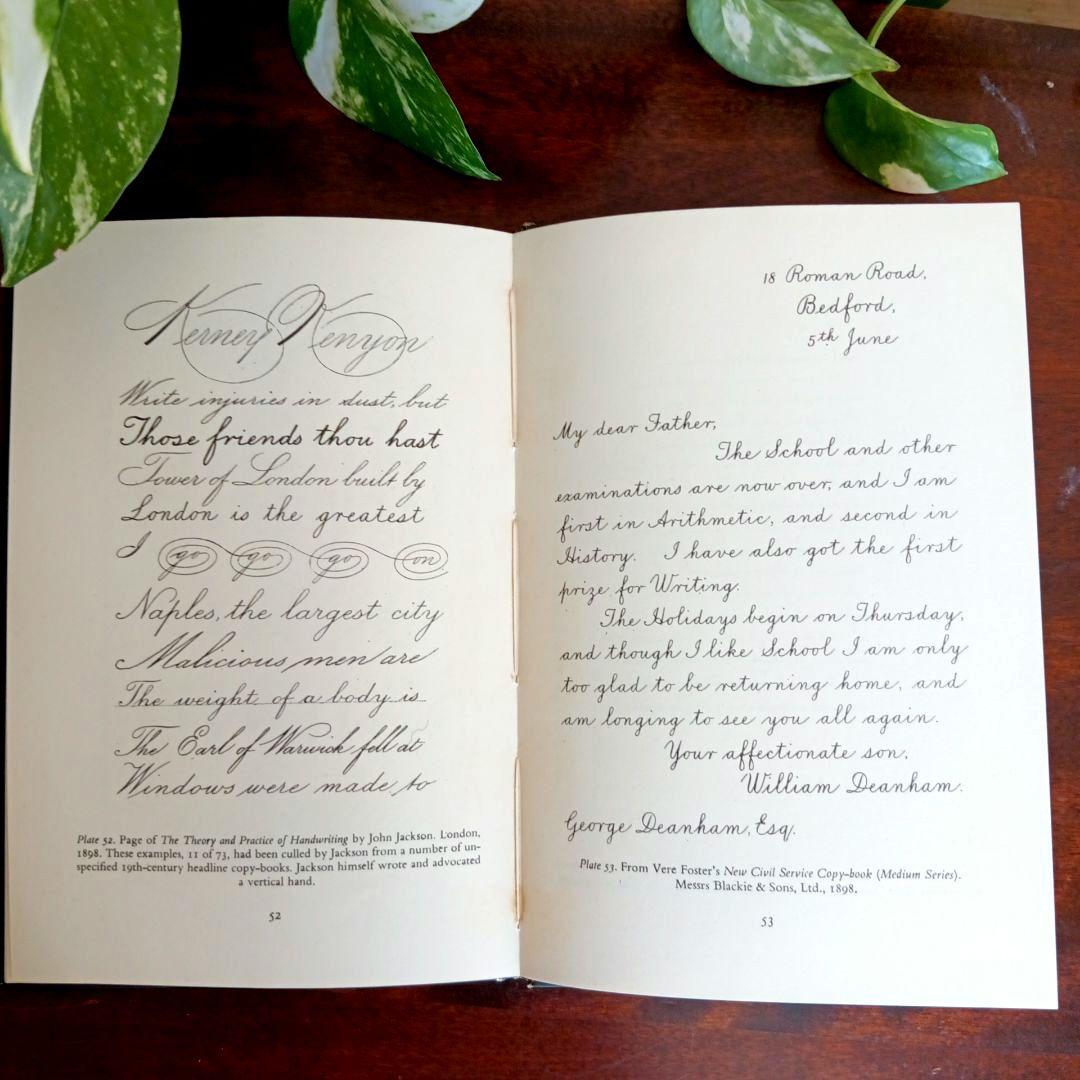 Kerney Kenyon
Write injuries in dust, but
Those friends thou hast
Tower of London built by
London is the greatest
I go go go on
Naples, the largest city
Malicious men are
The weight of a body is
The Earl of Warwick fell at
Windows were made to
Plate 52. Page of The Theory and Practice of Handwriting by John Jackson. London,
1898. These examples, 11 of 73, had been culled by Jackson from a number of un-
specified 19th-century headline copy-books. Jackson himself wrote and advocated
a vertical hand.
52
18 Roman Road,
Bedford,
5th June
My dear Father,
The School and other
examinations are now over, and I am
first in Arithmetic, and second in
History. I have also got the first
prize for Writing.
The Holidays begin on Thursday,
and though I like School I am only
too glad to be returning home, and
am longing to see you all again.
Your affectionate son,
William Deanham.
George Deanham, Esq.
Plate 53. From Vere Foster's New Civil Service Copy-book (Medium Series).
Messrs Blackie & Sons, Ltd., 1898.
53